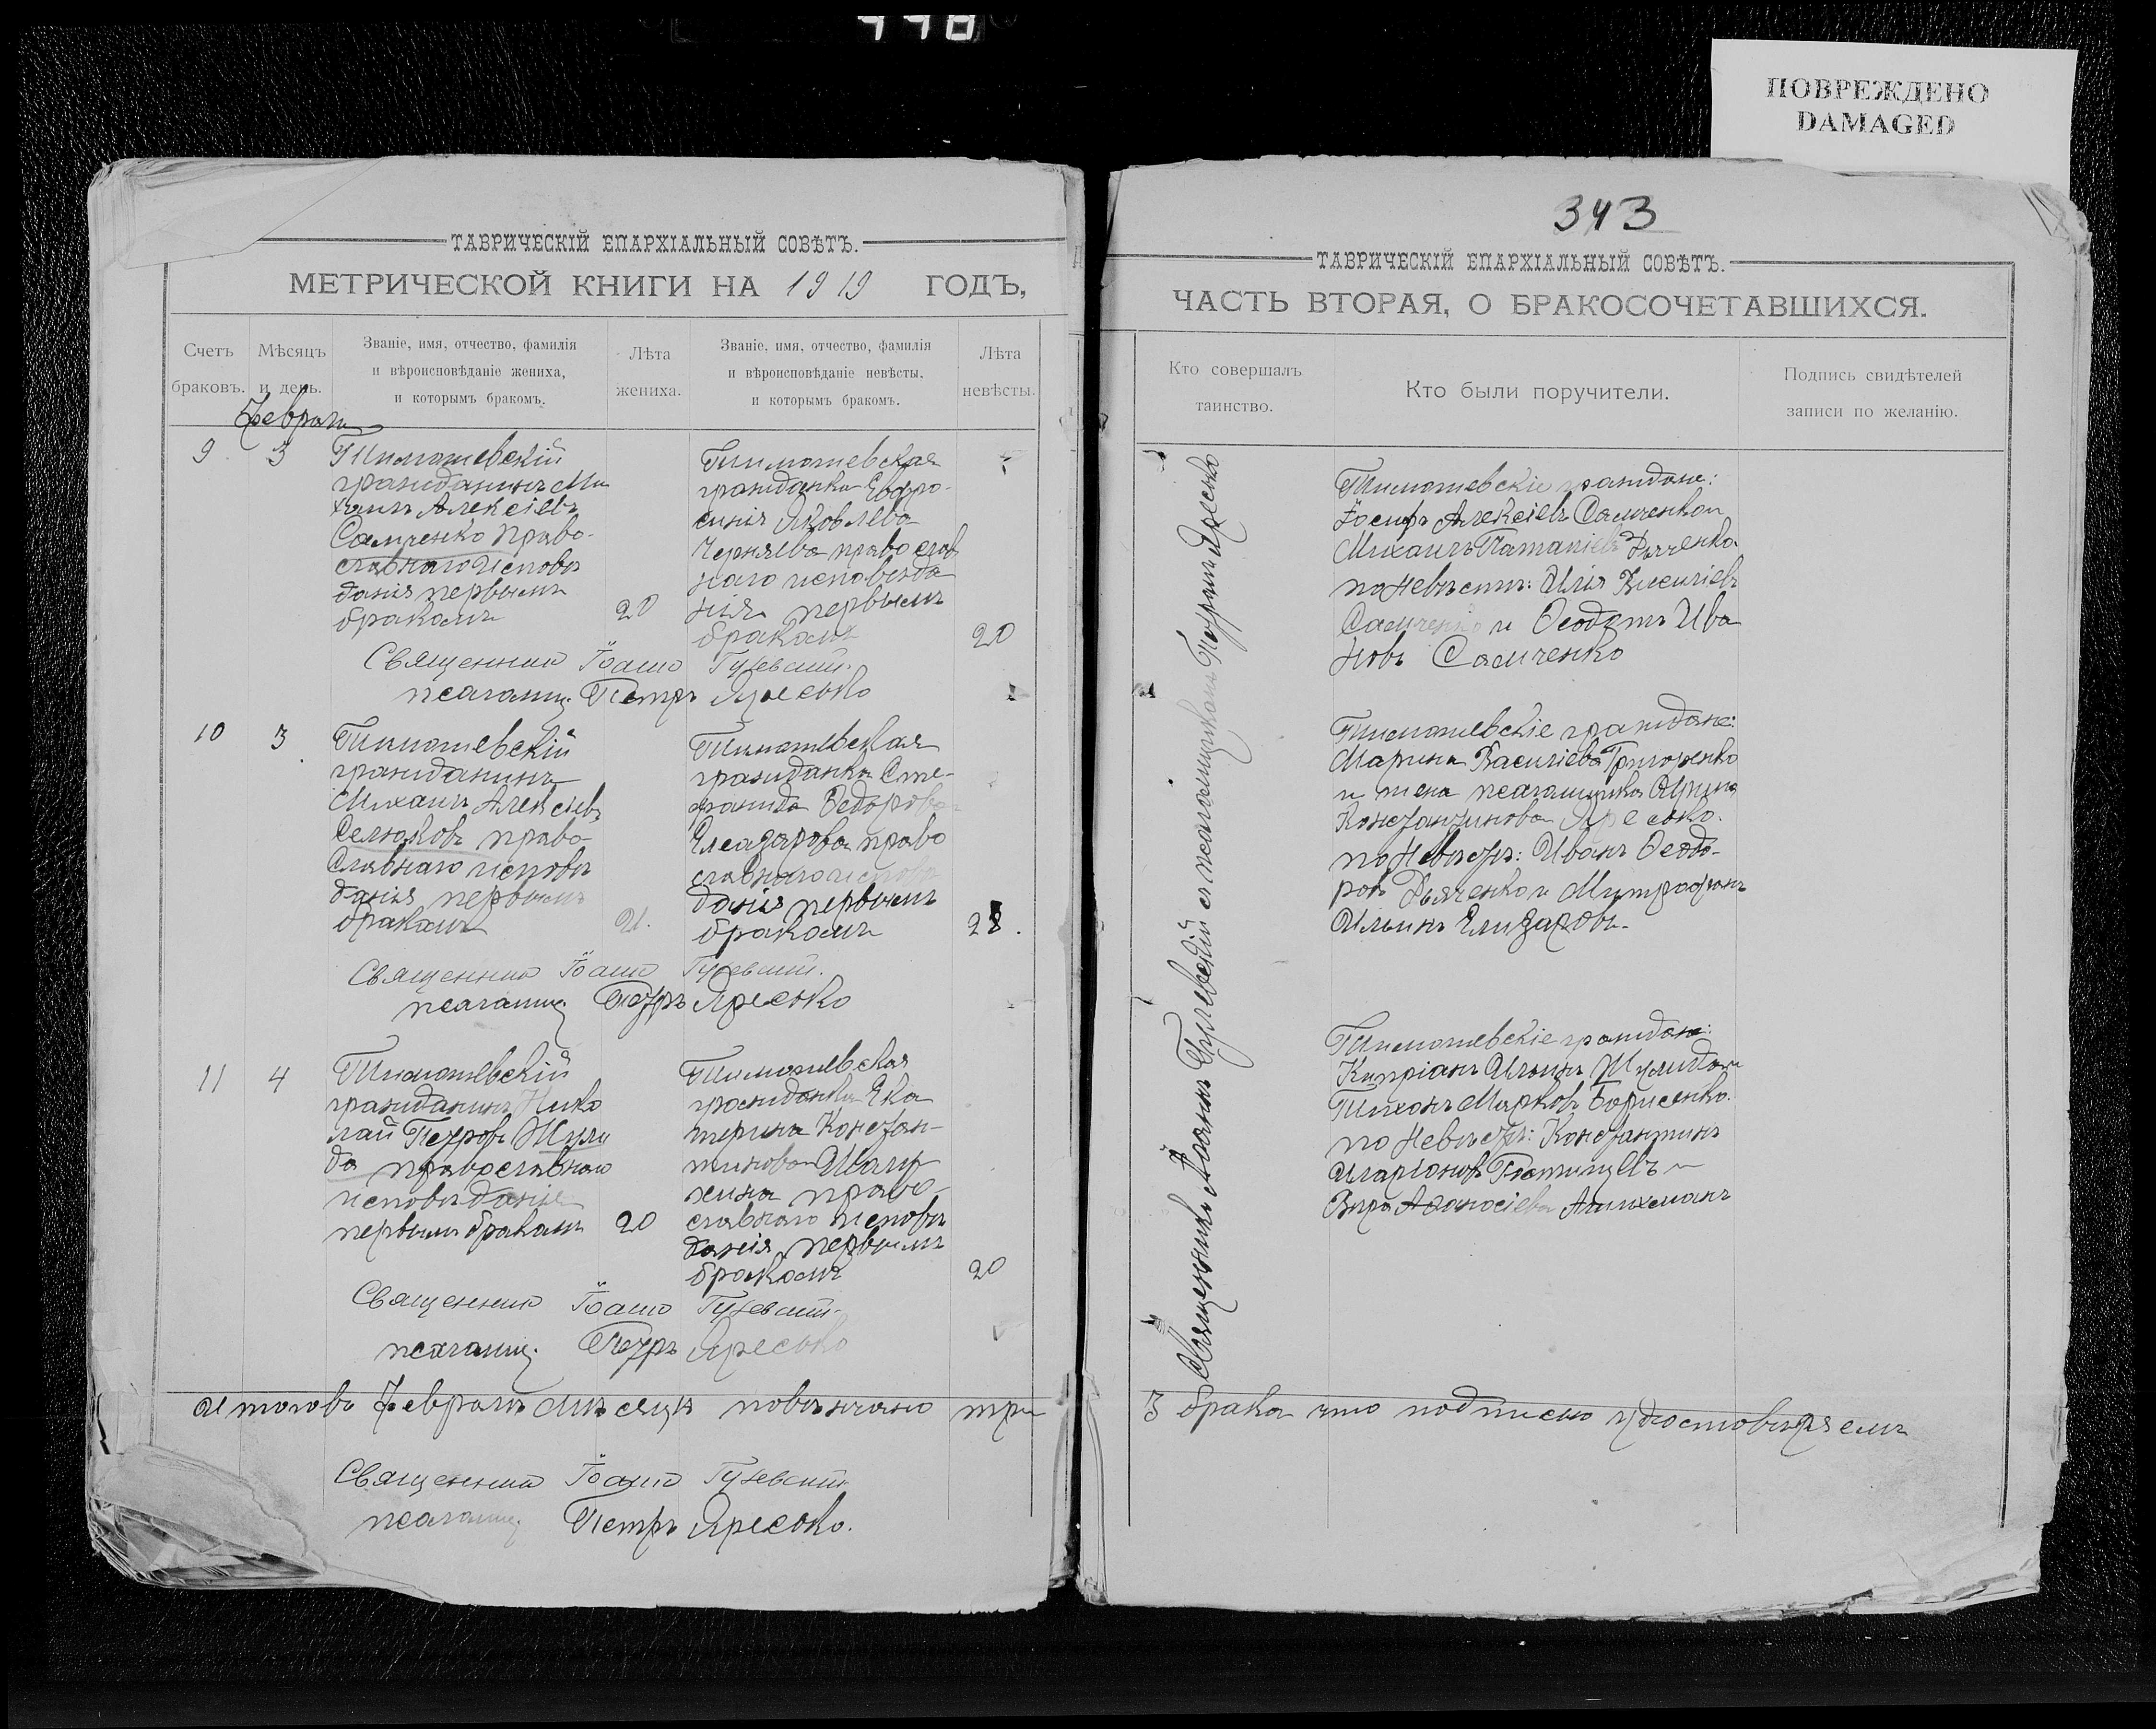 ПОВРЕЖДЕНО
DAMAGED
ТАВРИЧЕСКІЙ ЕПАРХІАЛЬНЫЙ СОВѢТЪ.
МЕТРИЧЕСКОЙ КНИГИ НА 1919 ГОДЪ,
Счетъ браковъ.
Мѣсяцъ и день.
Званіе, имя, отчество, фамилія
и вѣроисповѣданіе жениха,
и которымъ бракомъ.
Лѣта
жениха.
Званіе, имя, отчество, фамилія
и вѣроисповѣданіе невѣсты,
и которымъ бракомъ.
Лѣта
невѣсты.
Февраль
9 3
Тимошевскій
гражданинъ Ми
хаилъ Алексіевъ
Самченко право-
славнаго исповѣ
данія первымъ
бракомъ 20
Тимошевская
гражданка Евфро-
синія Яковлева
Черняева православ
наго исповѣда
нія первымъ
бракомъ 20
Священникъ Іоаннъ
псаломщ. Петръ Яресько
10 3
Тимошевскій
гражданинъ
Михаилъ Алексіевъ
Селюковъ право-
славнаго исповѣ
данія первымъ
бракомъ 21.
Тимошевская
гражданка Сте-
фанида Ѳедорова
Елеазарова право
славнаго исповѣ
данія первымъ
бракомъ
Священникъ Іоаннъ
псаломщ. Петръ Яресько
11 4
Тимошевскій
гражданинъ Нико
лай Петровъ Шули
да православнаго
исповѣданія
первымъ бракомъ 20
Тимошевская
гражданка Ека
терина Констан-
тинова
право-
славнаго исповѣ
данія первымъ
бракомъ 20
Священникъ Іоаннъ
псаломщ. Петръ Яресько
Итого въ Февралѣ мѣсяцѣ повѣнчано три
Священникъ Іоаннъ
псаломщ. Петръ Яресько.
343
ТАВРИЧЕСКІЙ ЕПАРХІАЛЬНЫЙ СОВѢТЪ.
ЧАСТЬ ВТОРАЯ, О БРАКОСОЧЕТАВШИХСЯ.
Кто совершалъ
таинство.
Кто были поручители.
Подпись свидѣтелей
записи по желанію.
Священникъ Іоаннъ съ псаломщикомъ Петромъ Яресько
Тимошевскіе граждане:
Іосифъ Алексіевъ Самченко и
Михаилъ Дьяченко
по невѣстѣ: Илія Василіевъ
Самченко и Ѳеодотъ Ива
новъ Самченко
Тимошевскіе граждане:
Марина Василіева Григоренко
и жена псаломщика Ирина
Константинова Яресько.
по невѣстѣ: Иванъ Ѳеодо-
ровъ Дьяченко и Митрофанъ
Ильинъ Елизаровъ.
Тимошевскіе граждане:
Кипріанъ Ильинъ Шулида и
Тихонъ Марковъ Борисенко.
по невѣстѣ: Константинъ
Иларіоновъ и
Вѣра Аѳанасіева
3 брака что подписью удостовѣряемъ